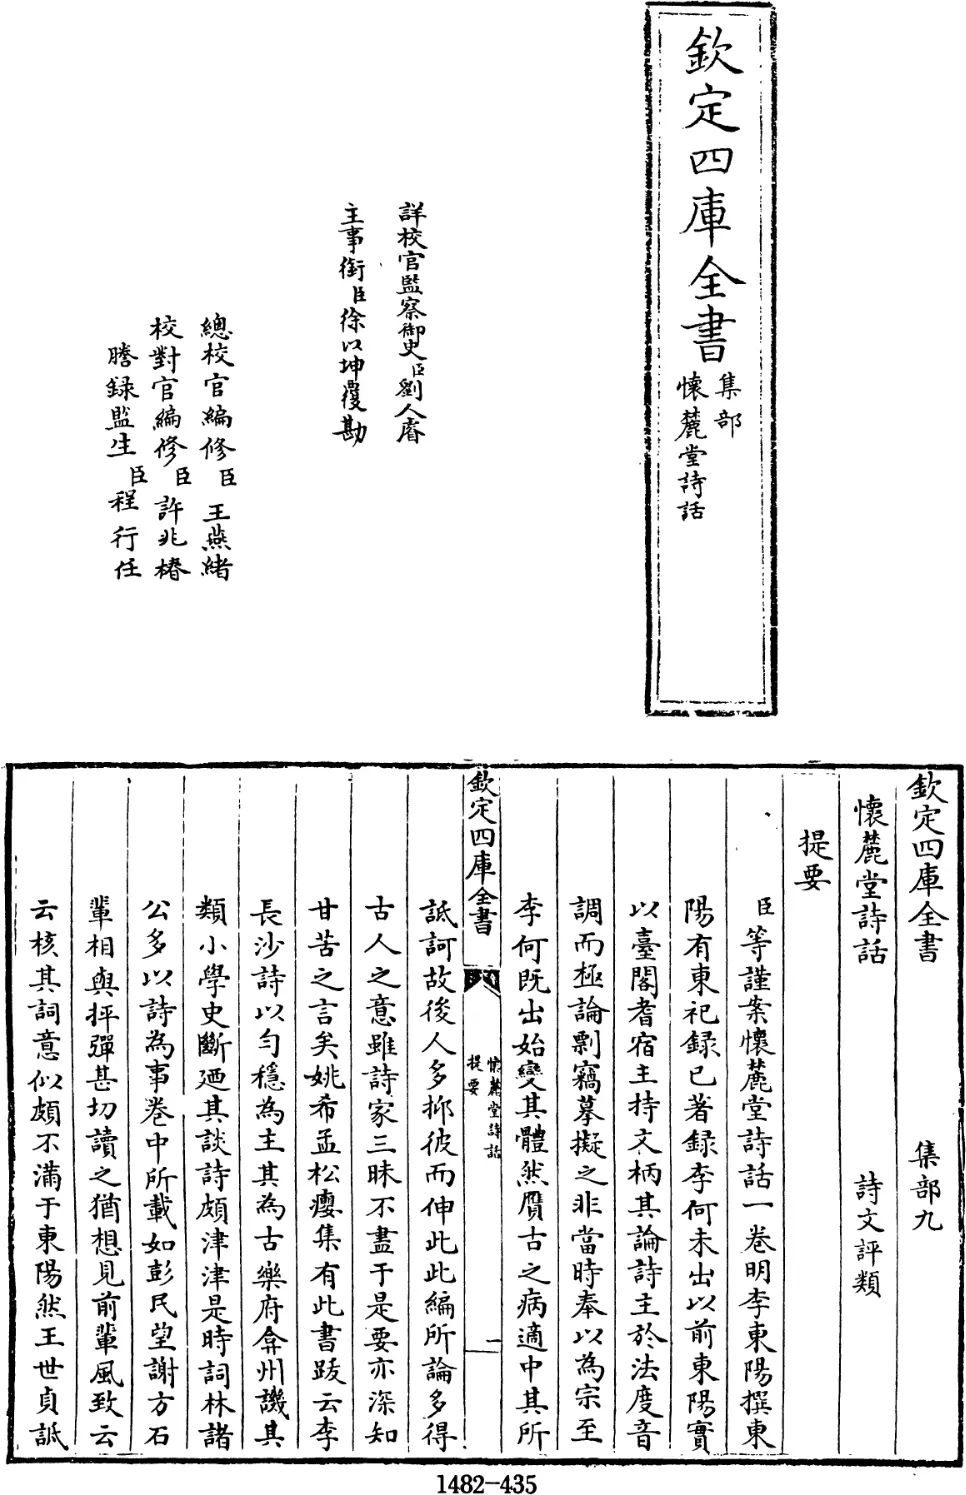 欽定四庫全書
集部
懷麓堂詩話
詳校官監察御史臣劉人睿
主事銜臣徐以坤覆勘
總校官編修臣王燕緒
校對官編修臣許兆椿
謄錄監生臣程行任
欽定四庫全書　集部九
懷麓堂詩話　詩文評類
提要
臣等謹案懷麓堂詩話一卷明李東陽撰東
陽有東祀録已著録李何未出以前東陽實
以臺閣耆宿主持文柄其論詩主於法度音
調而極論剽竊摹擬之非當時奉以為宗至
李何既出始變其體然贋古之病適中其所
欽定四庫全書
懷麓堂詩話
提要
一
詆訶故後人多抑彼而伸此此編所論多得
古人之意雖詩家三昧不盡于是要亦深知
甘苦之言矣姚希孟松癭集有此書跋云李
長沙詩以勻穩為主其為古樂府弇州譏其
類小學史斷廼其談詩頗津津是時詞林諸
公多以詩為事卷中所載如彭民望謝方石
輩相與抨彈甚切讀之猶想見前輩風致云
云核其詞意似頗不滿于東陽然王世貞詆
1482-435